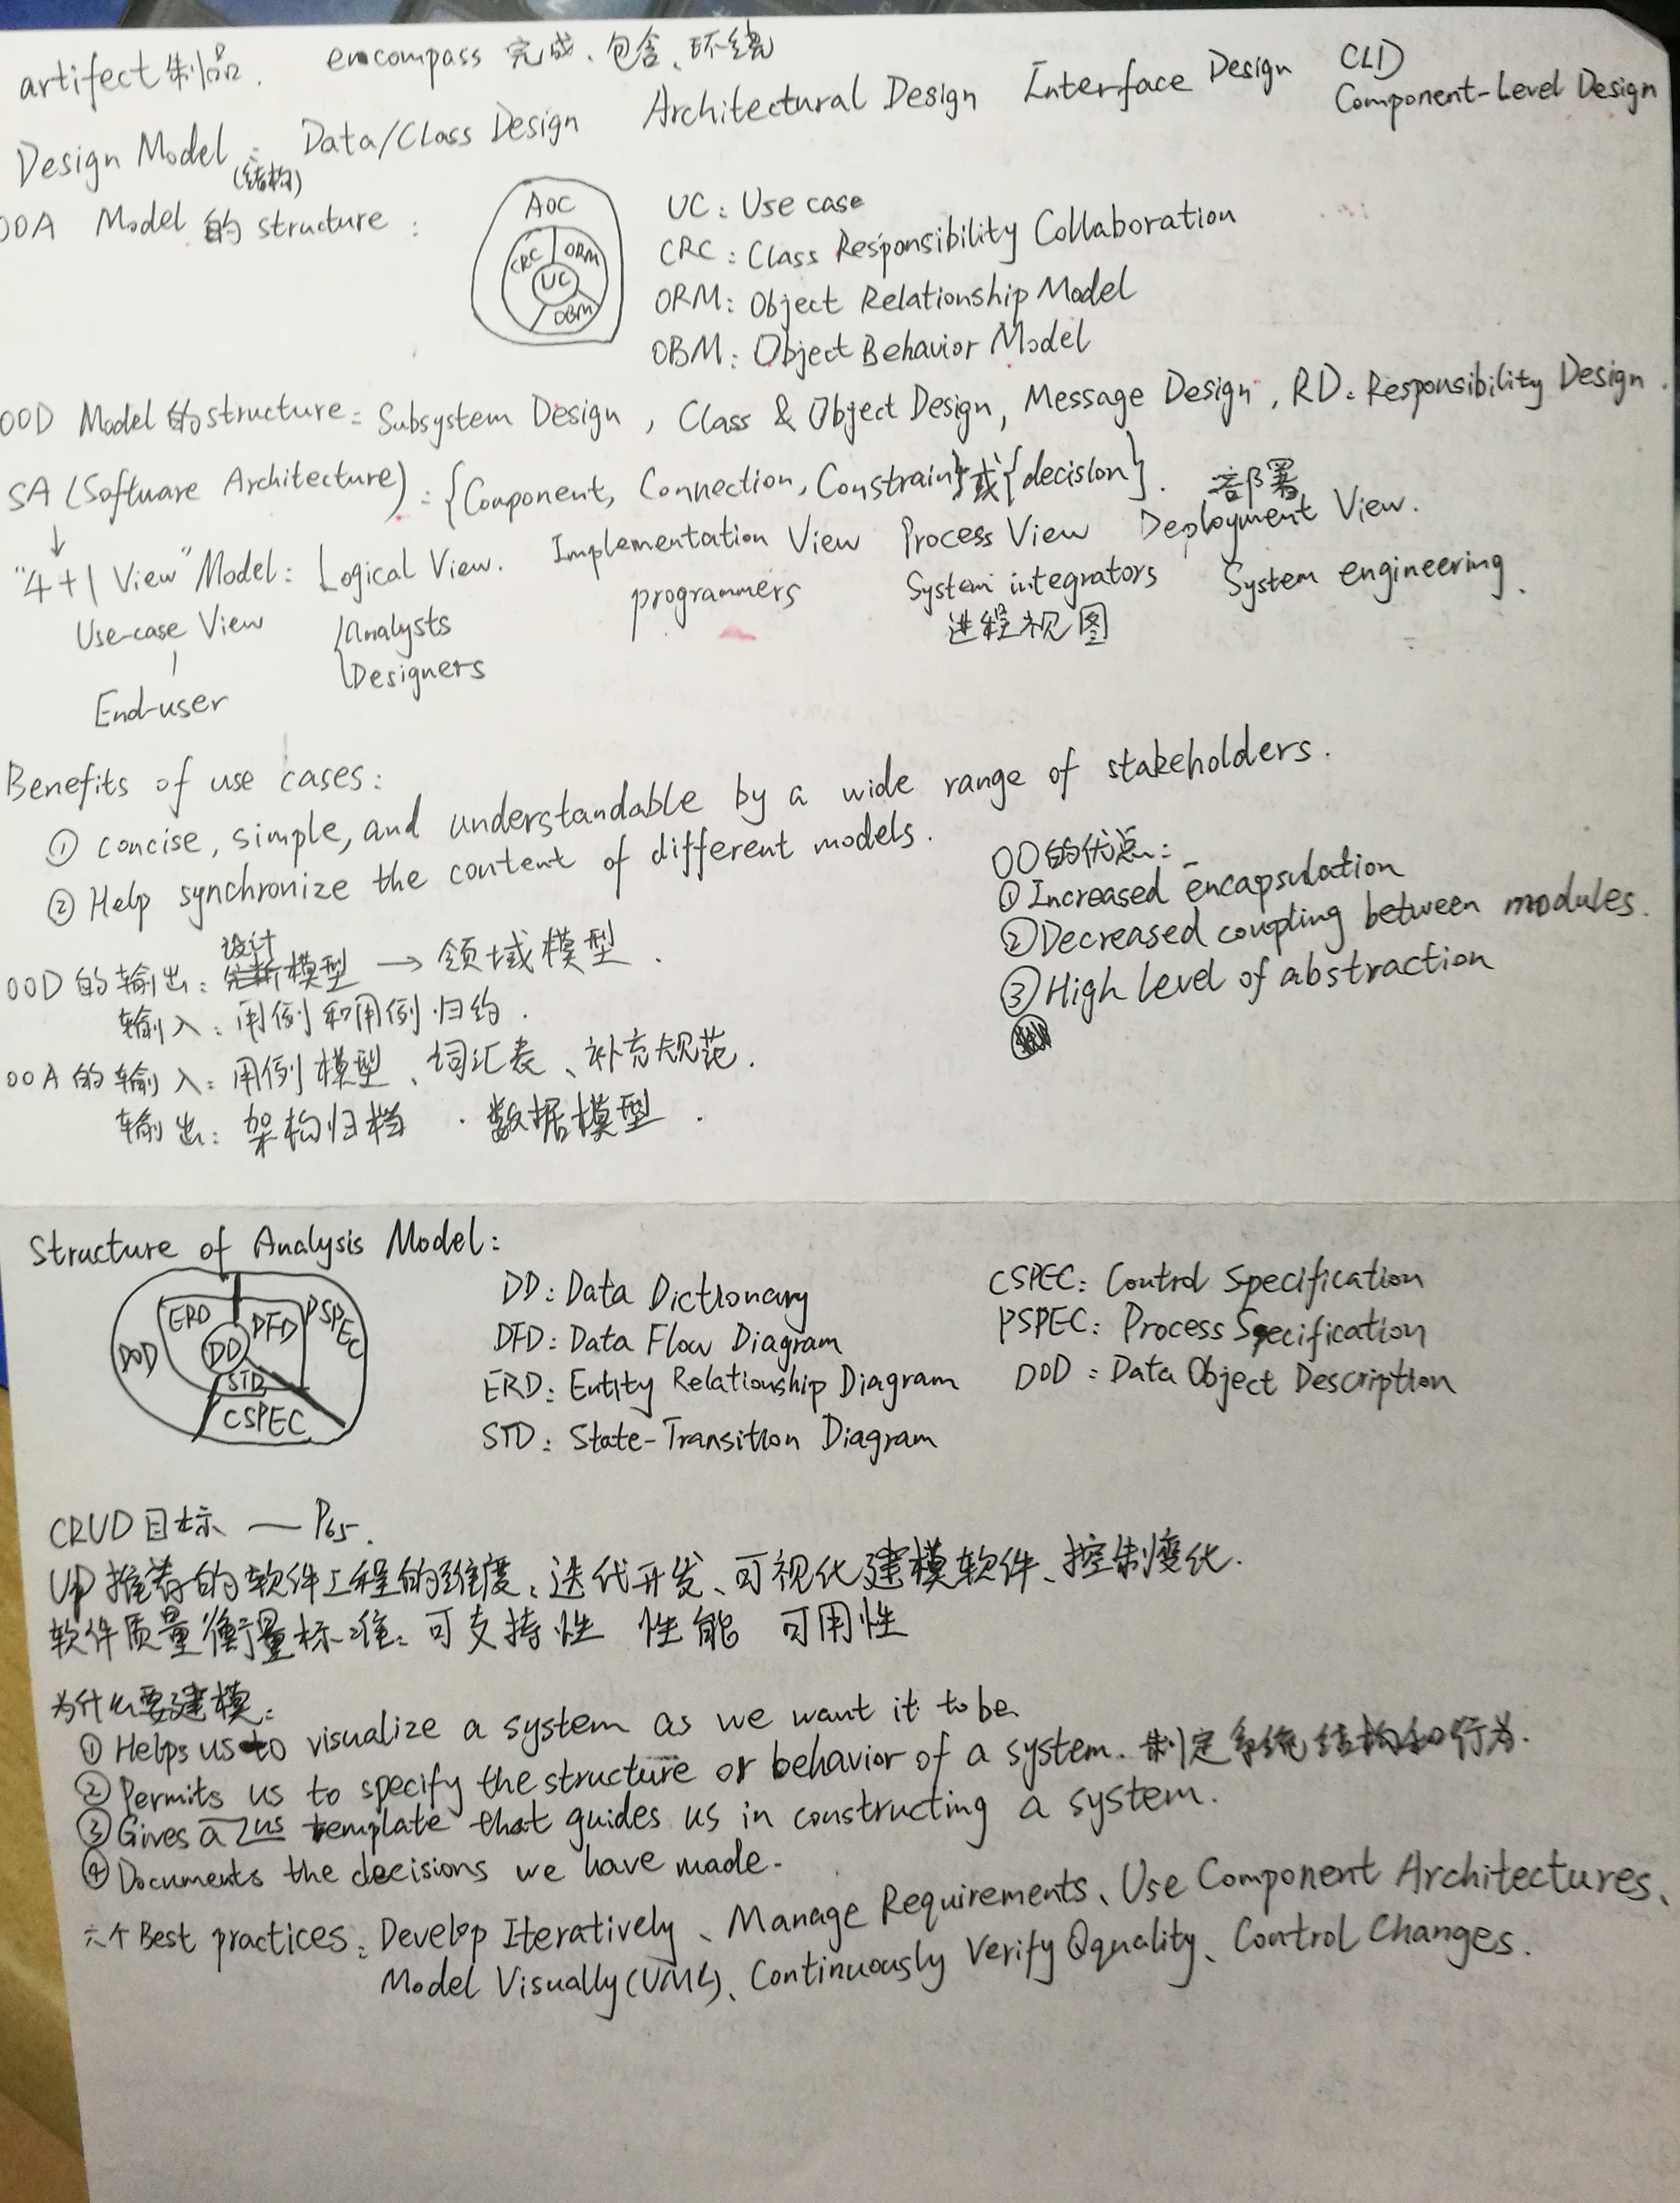 artifect 制品. encompass 完成、包含、环绕
Design Model: Data/Class Design Architectural Design Interface Design CLD Component-Level Design
(结构)
OOA Model 的 structure:
AOC
CRC ORM
UC
OBM
UC: Use case
CRC: Class Responsibility Collaboration
ORM: Object Relationship Model
OBM: Object Behavior Model
OOD Model 的structure: Subsystem Design, Class & Object Design, Message Design, RD: Responsibility Design.
SA (Software Architecture): {Component, Connection, Constrain}或{decision}.
部署
"4+1 View" Model: Logical View. Implementation View Process View Deployment View.
Use-case View Analysts programmers System integrators System engineering.
Designers 进程视图
End-user
Benefits of use cases:
① concise, simple, and understandable by a wide range of stakeholders.
② Help synchronize the content of different models.
OO的优点:
①Increased encapsulation
②Decreased coupling between modules.
③High level of abstraction
设计
OOD的输出: 模型 → 领域模型.
输入: 用例和用例归约.
OOA的输入: 用例模型、词汇表、补充规范.
输出: 架构归档. 数据模型.
Structure of Analysis Model:
ERD DFD PSPEC
DOD DD
STD
CSPEC
DD: Data Dictionary
DFD: Data Flow Diagram
ERD: Entity Relationship Diagram
STD: State-Transition Diagram
CSPEC: Control Specification
PSPEC: Process Specification
DOD: Data Object Description
CRUD目标 — P65.
UP推荐的软件工程的维度: 迭代开发、可视化建模软件、控制变化.
软件质量衡量标准: 可支持性 性能 可用性
为什么要建模:
① Helps us to visualize a system as we want it to be
② Permits us to specify the structure or behavior of a system. 制定系统结构和行为.
③ Gives a us template that guides us in constructing a system.
④ Documents the decisions we have made.
六个Best practices: Develop Iteratively、Manage Requirements、Use Component Architectures、
Model Visually(UML)、Continuously Verify Qquality、Control Changes.